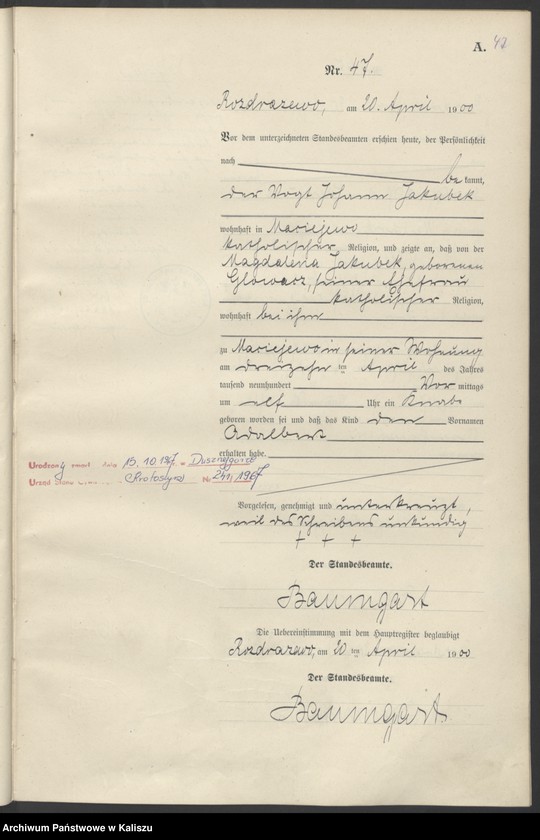 A. 47
Nr. 47.
Rozdrazewo, am 20. April 1900
Vor dem unterzeichneten Standesbeamten erschien heute, der Persönlichkeit
nach
be kannt,
der Vogt Johann Jakubek
wohnhaft in Maciejewo
katholischer Religion, und zeigte an, daß von der
Magdalena Jakubek, geborenen
Glowacz, seiner Ehefrau
katholischer Religion,
wohnhaft bei ihm
zu Maciejewo in seiner Wohnung
am dreizehn ten April des Jahres
tausend neunhundert Vor mittags
um elf Uhr ein Knabe
geboren worden sei und daß das Kind den Vornamen
Adalbert
erhalten habe.
Urodzony zmarł dnia 15.10.1967. w
Urząd Stanu (Krotoszyn) Nr 241/1967
Vorgelesen, genehmigt und unterkreuzt,
weil des Schreibens unkundig
+ + +
Der Standesbeamte.
Baumgart
Die Uebereinstimmung mit dem Hauptregister beglaubigt
Rozdrazewo, am 20 ten April 1900
Der Standesbeamte.
Baumgart
Archiwum Państwowe w Kaliszu